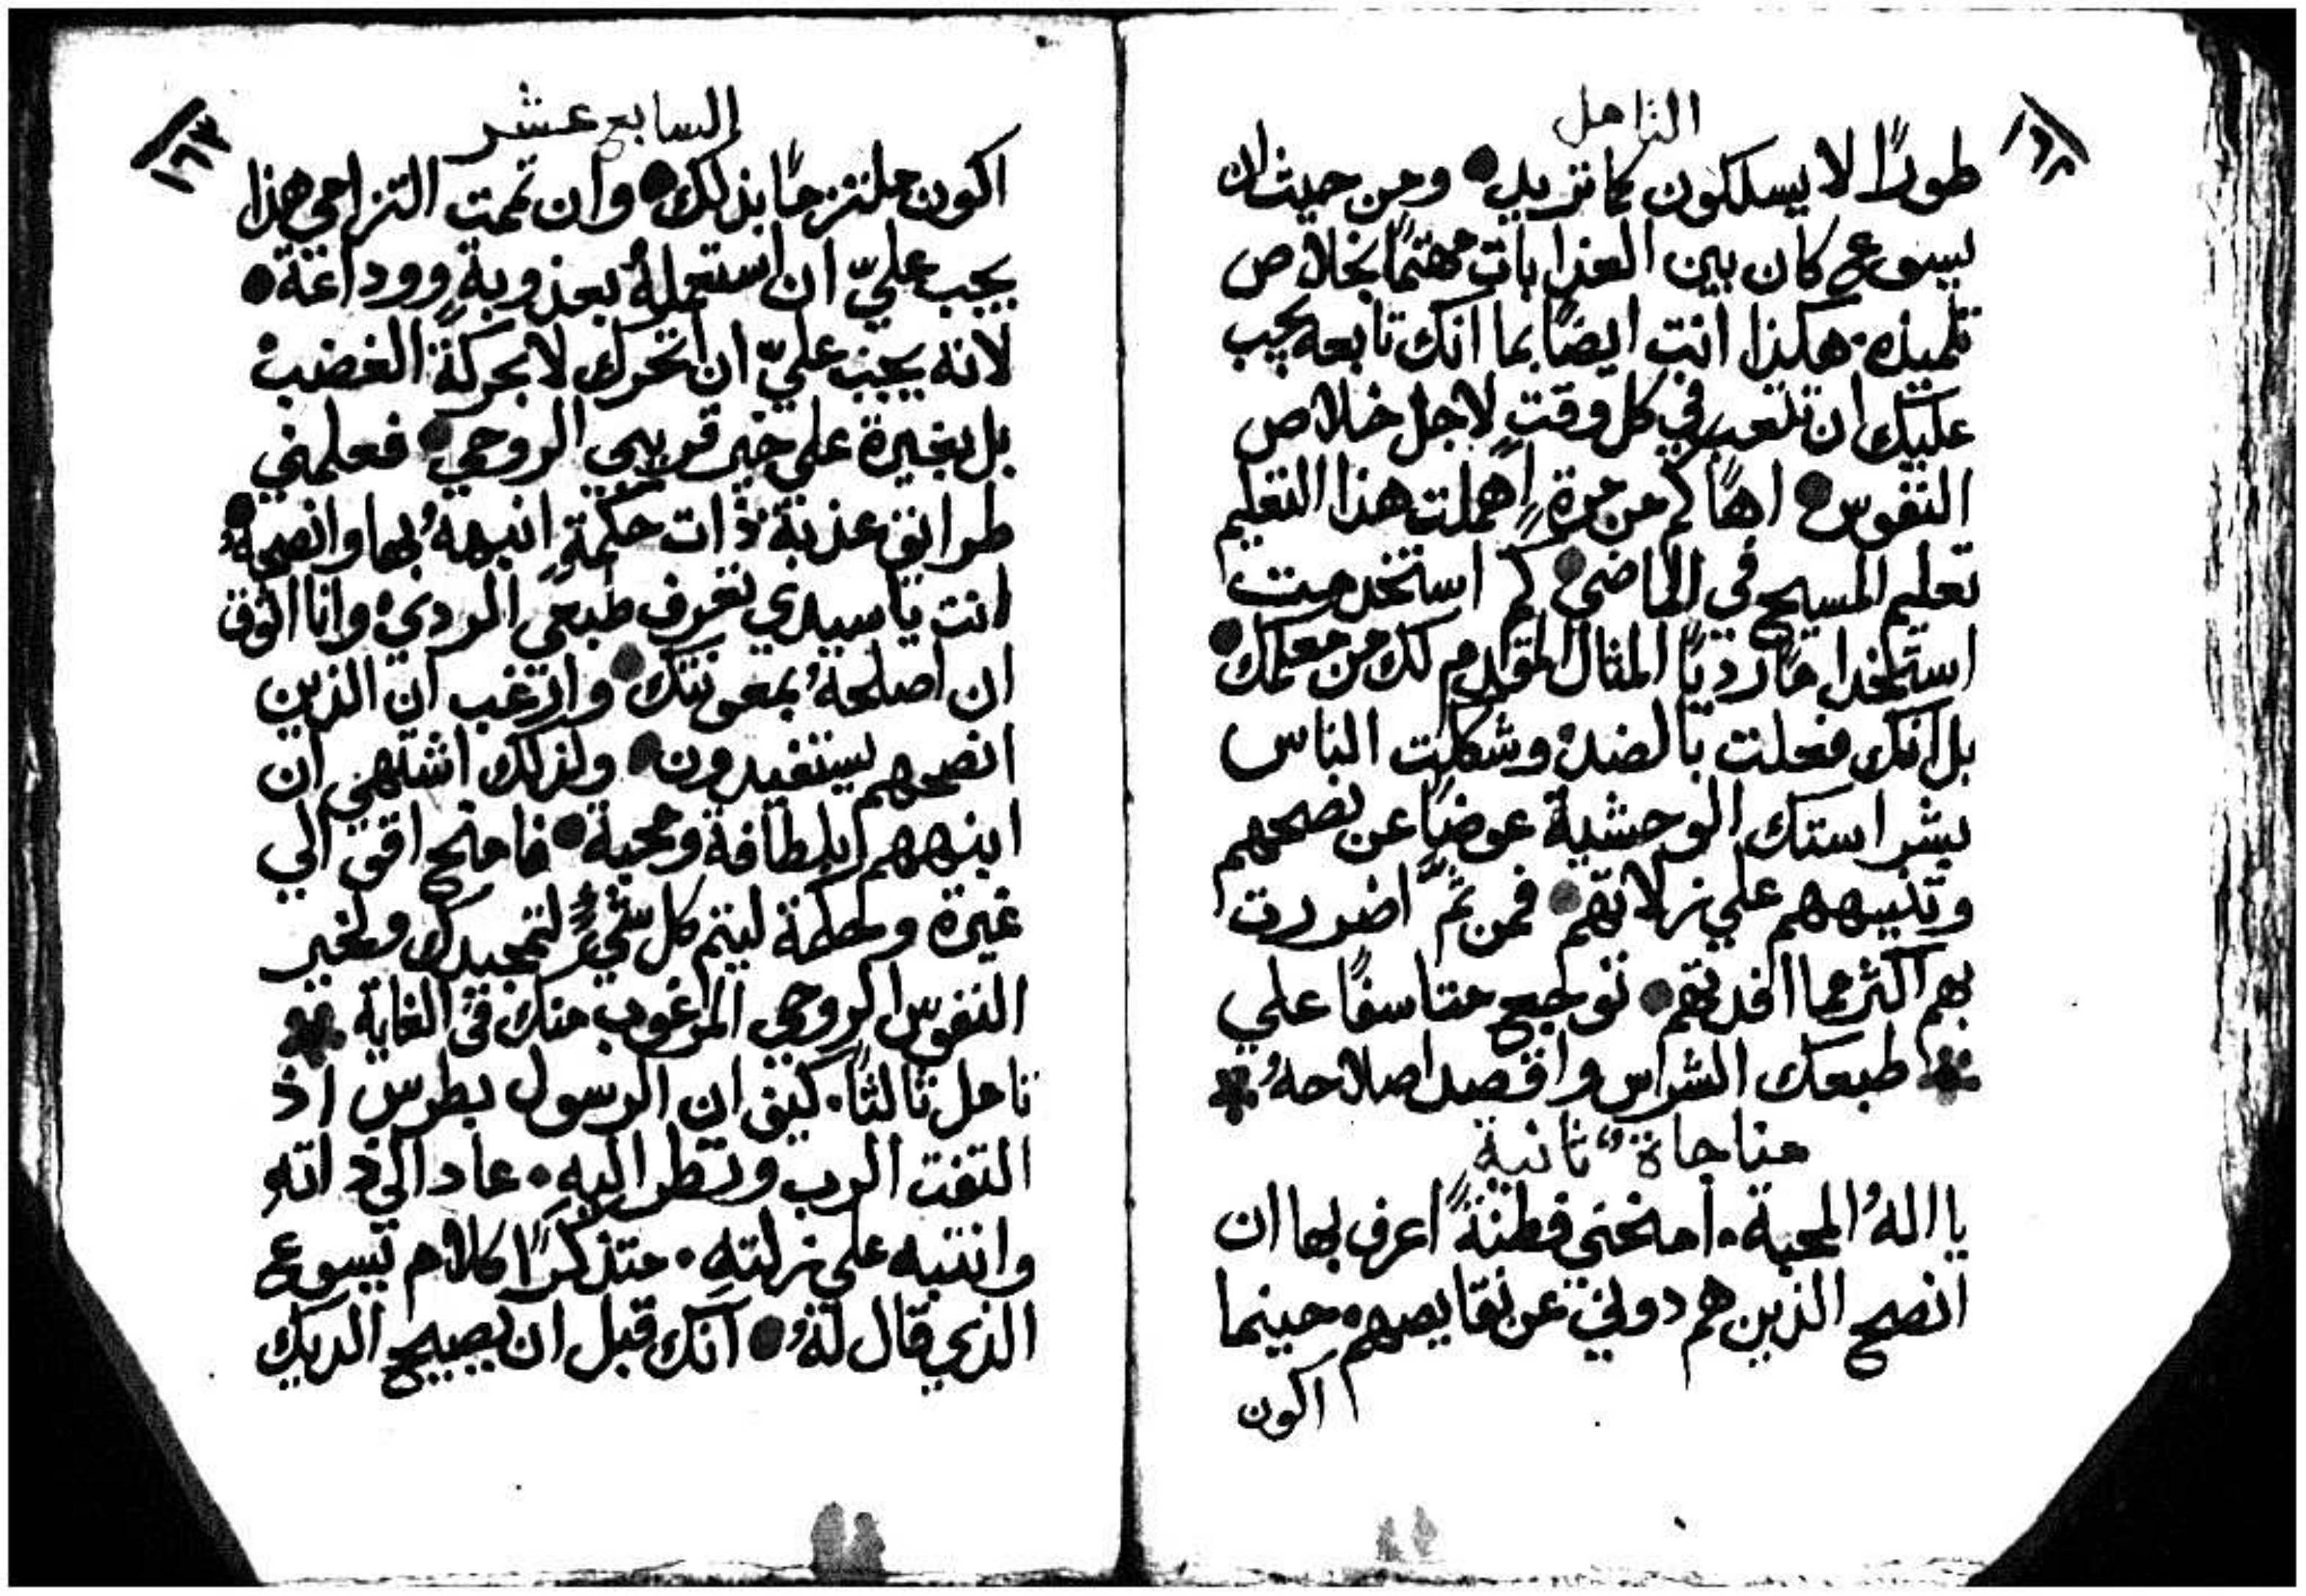 التامل
١٦٢
طورًا لا يسلكون كما تريد • ومن حيث ان
يسوع كان بين العذابات مهتمًا بخلاص
تلميذه • هكذا انت ايضًا بما انك تابعه يجب
عليك ان تتعب في كل وقتٍ لاجل خلاص
النفوس • اهًا كم من مرةٍ اهملت هذا التعليم
تعليم المسيح في الماضي • كم استخدمت
استخدامًا رديًا المثال المقدم لك من معلمك •
بل انك فعلت بالضد وشككت الناس
بشراستك الوحشية عوضًا عن نصحهم
وتنبيههم علي زلاتهم • فمن ثمَّ اضررت
بهم اكثر مما افدتهم • توجع متاسفًا علي
طبعك الشراس واقصد اصلاحهُ
مناجاة ثانية
يا اللهُ المحبة • امنحني فطنةً اعرف بها ان
انصح الذين هم دوني عن نقايصهم • حينما
اكون
السابع عشر
١٦٣
اكون ملتزمًا بذلك • وان تممت التزامي هذا
يجب عليّ ان استعملهُ بعذوبةٍ ووداعة •
لانه يجب عليّ ان اتحرك لا بحركة الغضب
بل بغيرة علي خير قريبي الروحي • فعلمني
طرايق عذبة ذات حكمةٍ انبههُ بها وانصحهُ •
انت يا سيدي تعرف طبعي الردي وانا اثوق
ان اصلحهُ بمعونتك • وارغب ان الذين
انصحهم يستفيدون • ولذلك اشتهي ان
انبههم بلطافة ومحبة • فامنح اقوالي
غيرة وحكمة ليتم كل شيءٍ لتمجيدك ولخير
النفوس الروحي المرغوب منك في الغاية
تامل ثالثًا • كيف ان الرسول بطرس اذ
التفت الرب ونظر اليه • عاد الي ذاته
وانتبه علي زلته • متذكرًا كلام يسوع
الذي قال لهُ • انك قبل ان يصيح الديك